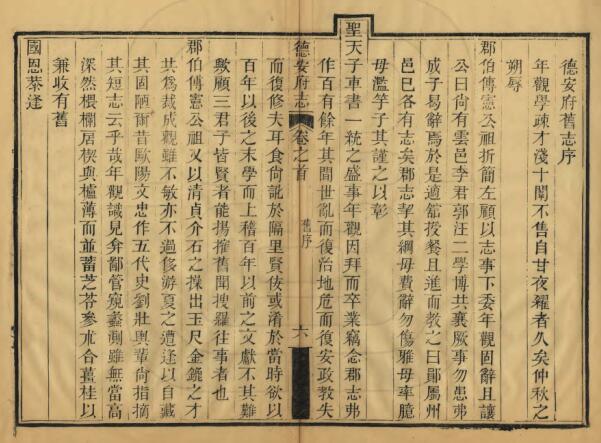 德安府舊志序
年觀學疎才淺十闈不售自甘夜糴者久矣仲秋之
朔辱
郡伯傅憲公祖折簡左顧以志事下委年觀固辭且讓
公曰尚有雲邑李君郭汪二學博共襄厥事勿患弗
成予易辭焉於是適舘授餐且進而教之曰鄖屬州
邑巳各有志矣郡志挈其綱毋費辭勿傷雅毋率臆
毋濫竽子其謹之以彰
聖天子車書一統之盛事年觀因拜而卒業竊念郡志弗
作百有餘年其間世亂而復治地危而復安政教失
德安府志
卷之首
舊序
六
而復修夫耳食尚訛於隔里賢伎或淆於當時欲以
百年以後之末學而上稽百年以前之文獻不其難
歟顧三君子皆賢者能揚搉舊聞搜羅往事者也
郡伯傅憲公祖又以清貞介石之操出玉尺金鎞之才
共為裁成觀雖不敏亦不過侈游夏之遭逢以自藏
其固陋爾昔歐陽文忠作五代史劉壯輿輩尚指摘
其短志云乎哉年觀識見弇鄙管窺蠡測雖無當高
深然椳闑居楔與櫨薄而並蓄芝苓參朮合薑桂以
兼收有舊
國恩恭逢